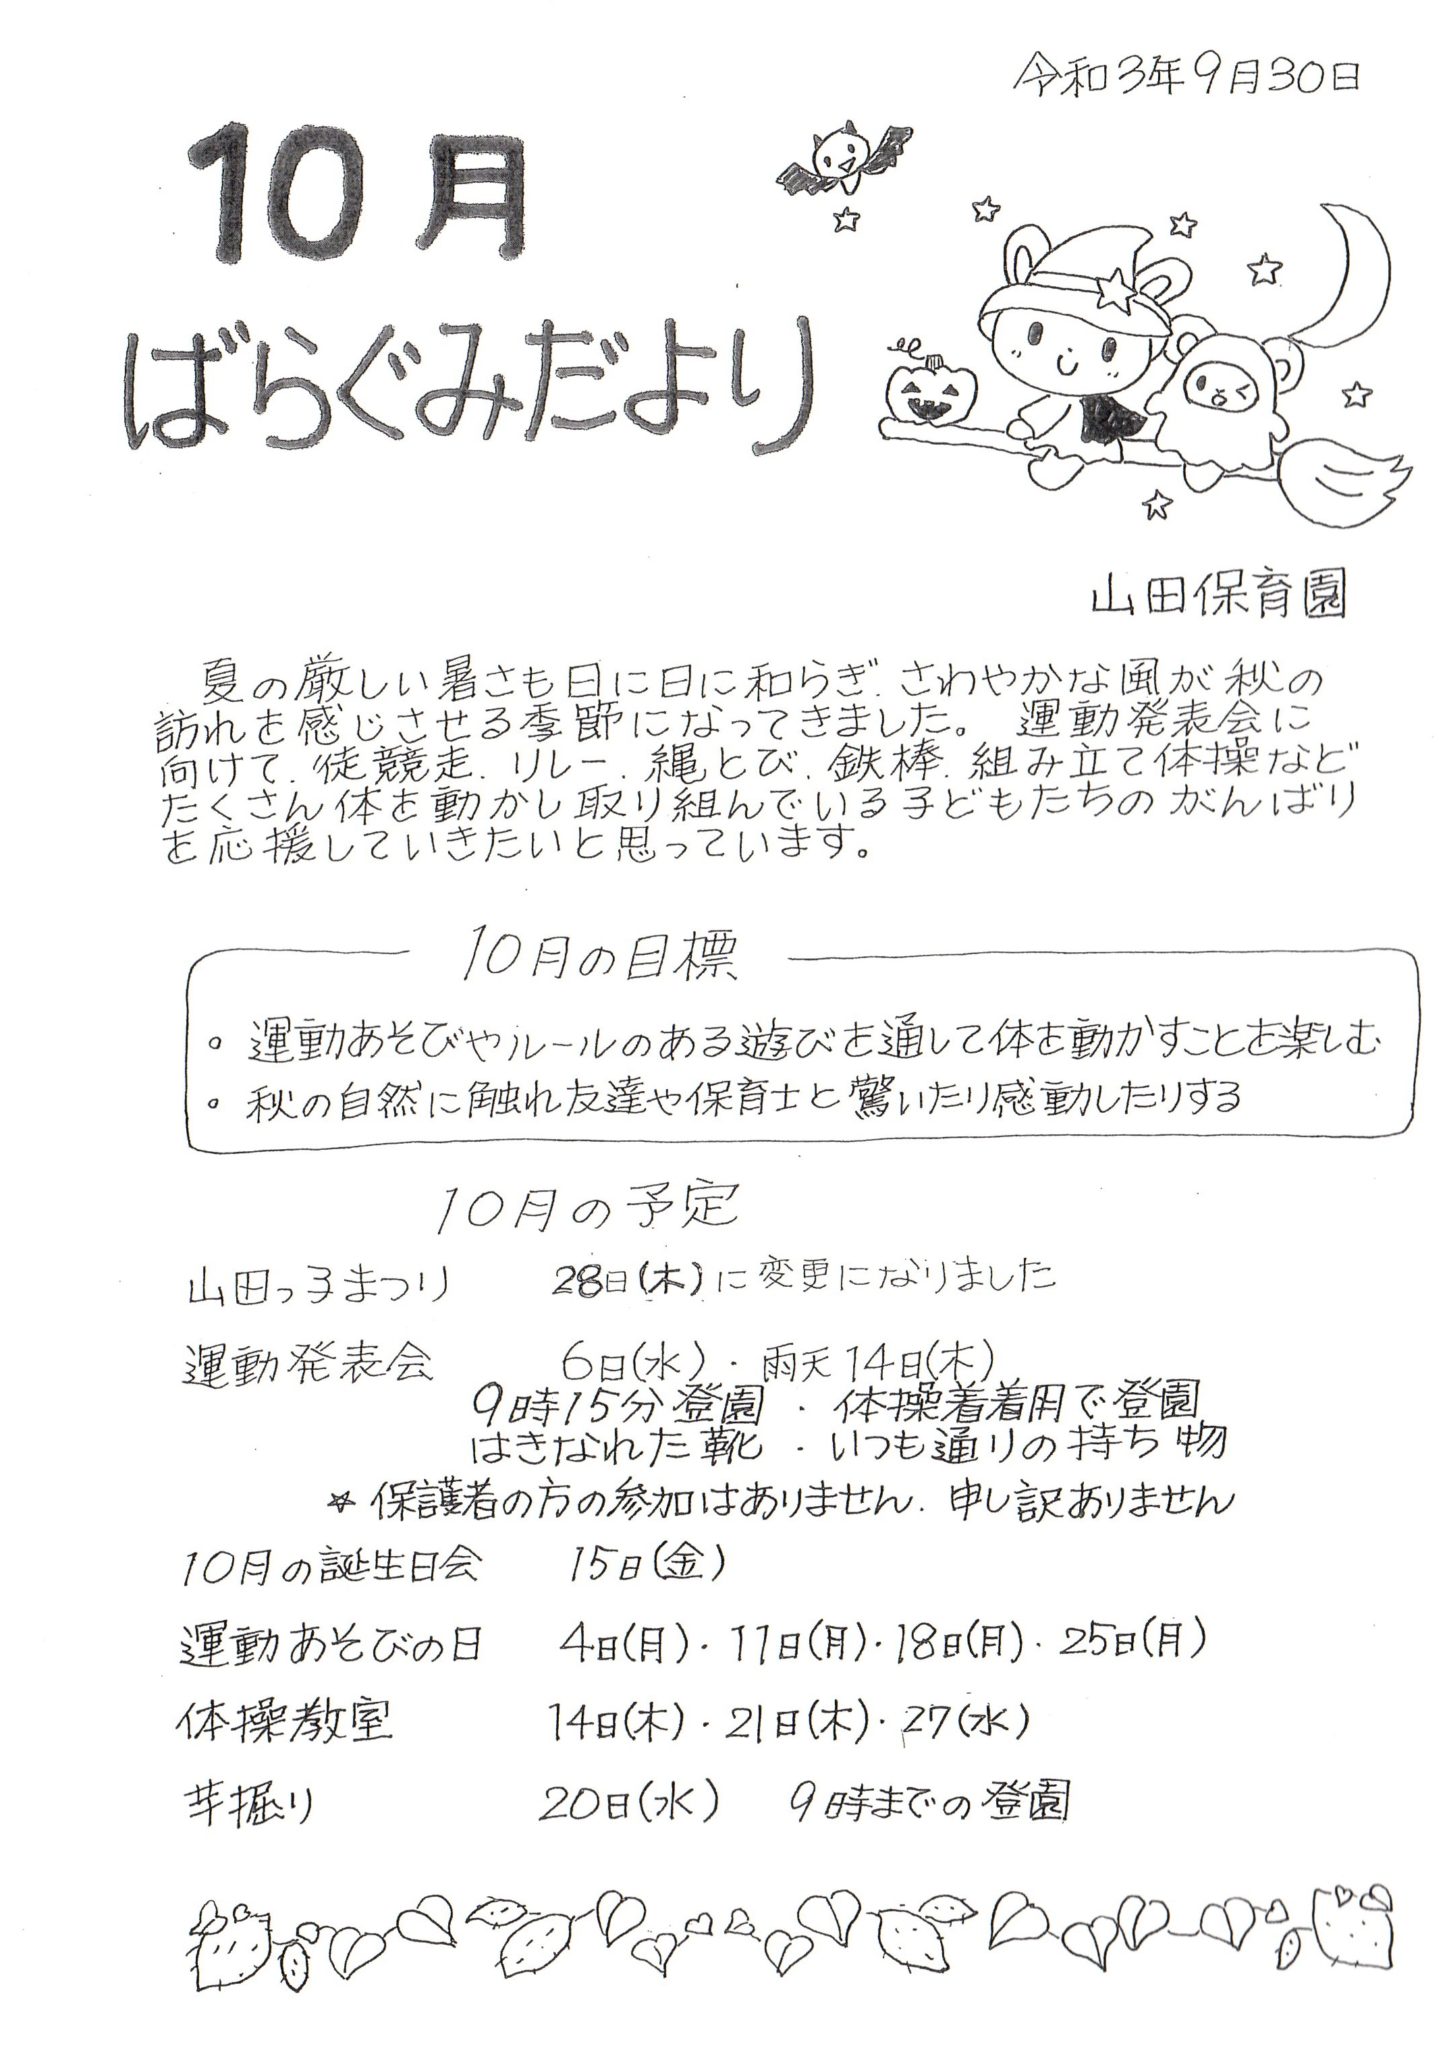 令和3年9月30日
10月
ばらぐみだより
山田保育園
夏の厳しい暑さも日に日に和らぎ、さわやかな風が秋の
訪れを感じさせる季節になってきました。運動発表会に
向けて、徒競走、リレー、縄とび、鉄棒、組み立て体操など
たくさん体を動かし取り組んでいる子どもたちのがんばり
を応援していきたいと思っています。
10月の目標
。運動あそびやルールのある遊びを通して体を動かすことを楽しむ
。秋の自然に触れ友達や保育士と驚いたり感動したりする
10月の予定
山田っ子まつり 28日(木)に変更になりました
運動発表会 6日(水)・雨天14日(木)
9時15分登園・体操着着用で登園
はきなれた靴・いつも通りの持ち物
☆保護者の方の参加はありません。申し訳ありません
10月の誕生日会 15日(金)
運動あそびの日 4日(月)・11日(月)・18日(月)・25日(月)
体操教室 14日(木)・21日(木)・27(水)
芋掘り 20日(水) 9時までの登園